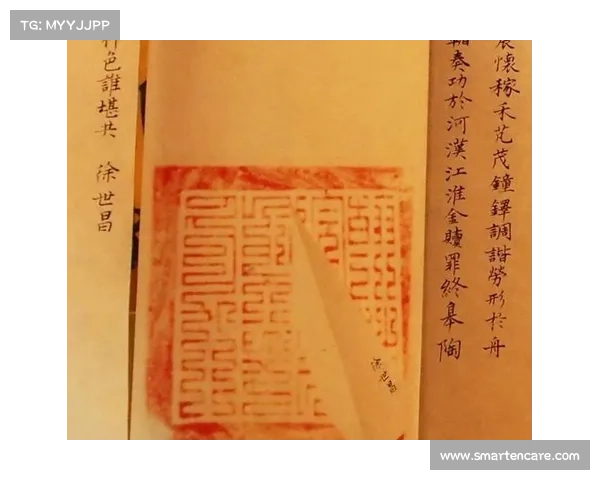 TG: MYYJJPP
懷稼禾芃茂鐘鐸調諧勞形於舟
奏功於河漢江淮金贖罪終皋陶
徐世昌
色誰堪共 徐世昌
www.smartencare.com